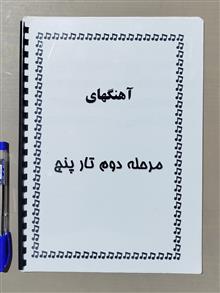 آهنگهای
مرحله دوم تار پنج